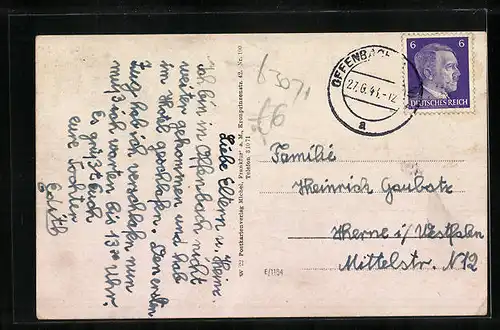 Liebe Eltern u. Heinz.
Ich bin in Offenbach nicht
weiter gekommen und hab
im Hotel geschlafen. Den ersten
Zug hab ich verschlafen nun
muß ich warten bis 13⁰⁰ Uhr
Es grüßt Euch
eure Tochter
Edith
W 22 Postkartenverlag Michel, Frankfurt a. M., Kronprinzenstr. 42, Nr. 100
Telefon 31071
b 3071
£6
OFFENBACH
27.6.41.-12
a
6 6
DEUTSCHES REICH
Familie
Heinrich Gaubatz
Herne i/Westfalen
Mittelstr. N12
E/1194